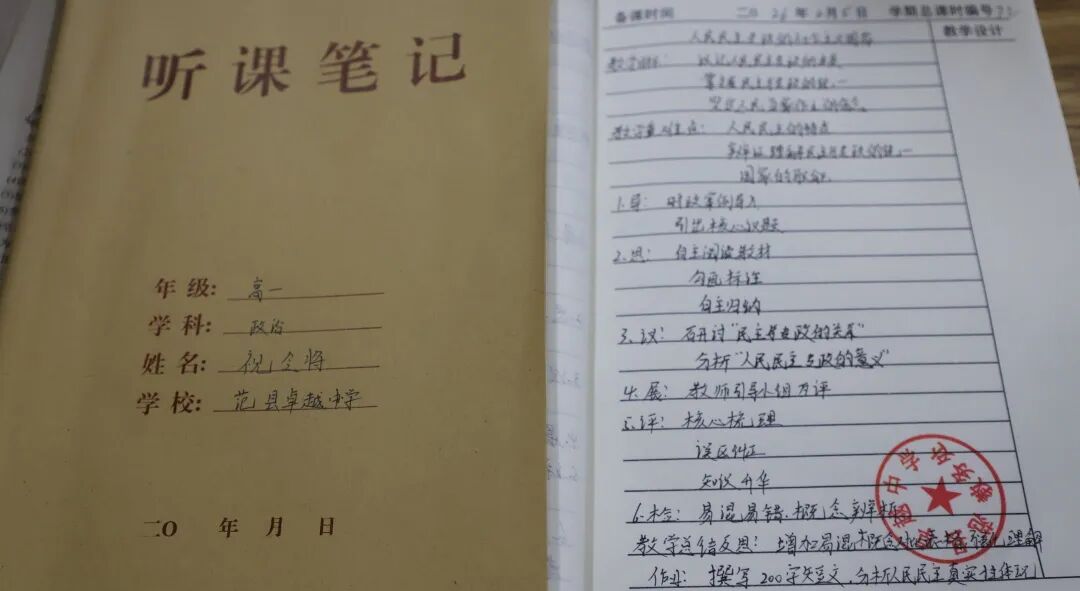 听课笔记
年 级: 高一
学 科: 政治
姓 名: 祝令将
学 校: 范县卓越中学
二〇 年 月 日
备课时间 二〇26年 月 日 学期总课时编号
教学设计
人民民主专政的社会主义国家
教学目标:
坚定人民当家作主的信念
教学重难点: 人民民主的特点
国家的职能
1.导: 时政案例导入
引出核心议题
2.思: 自主阅读教材
勾画标注
自主归纳
3.议: 研讨"民主与专政的关系"
分析"人民民主专政的意义"
4.展: 教师引导小组互评
5.评: 核心梳理
误区纠正
知识升华
6.检: 易混易错、概念辨析
教学总结反思: 增加易混概念 理解
作业: 撰写200字短文,分析人民民主真实性体现